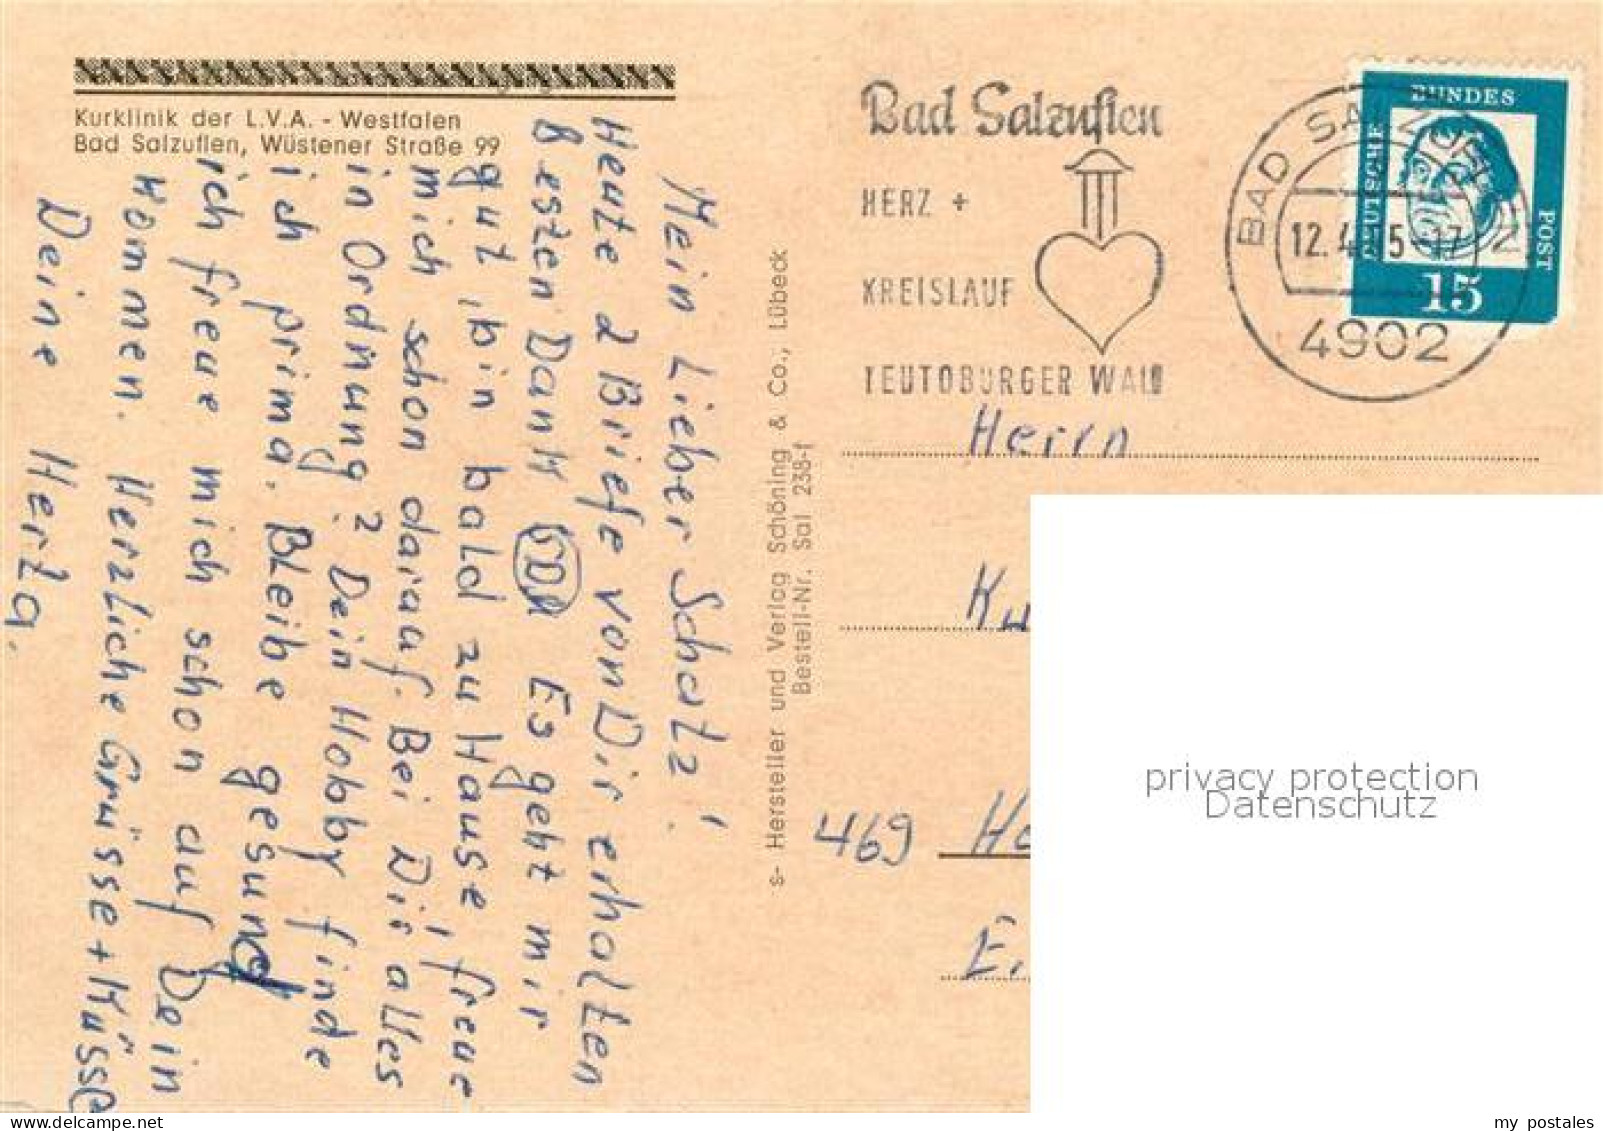 Kurklinik der L.V.A. - Westfalen
Bad Salzuflen, Wüstener Straße 99
Mein Lieber Schatz!
Heute 2 Briefe von Dir erhalten
Besten Dank Es geht mir
gut, bin bald zu Hause, freue
mich schon darauf. Bei Dir alles
in Ordnung? Dein Hobby finde
ich prima. Bleibe gesund
ich freue mich schon auf Dein
Kommen. Herzliche Grüsse + Küsse
Deine Herza.
s- Hersteller und Verlag Schöning & Co., Lübeck
Bestell-Nr. Sal 238-f
Bad Salzuflen
HERZ +
KREISLAUF
TEUTOBURGER WALD
BAD SALZUFLEN
12.4. 15-17
4902
DEUTSCHE BUNDES POST
15
Herrn
Ku
469 He
E.
privacy protection
Datenschutz
my postales